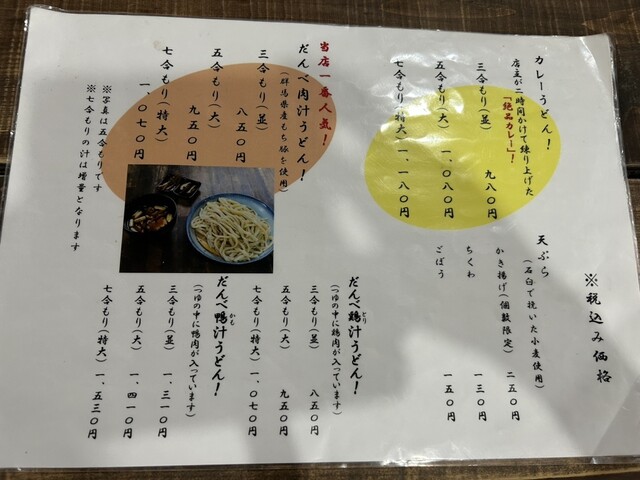 ※税込み価格
カレーうどん！
店主が二時間かけて練り上げた
「絶品カレー」！
三合もり(並)　九八〇円
五合もり(大)　一、〇八〇円
七合もり(特大)　一、一八〇円
天ぷら
(石臼で挽いた小麦使用)
かき揚げ(個数限定)　二五〇円
ちくわ　一三〇円
ごぼう　一五〇円
当店一番人気！
だんべ肉汁うどん！
(群馬県産もち豚を使用)
三合もり(並)　八五〇円
五合もり(大)　九五〇円
七合もり(特大)　一、〇七〇円
※写真は五合もりです
※七合もりの汁は増量となります
だんべ鶏汁うどん！
とり
(つゆの中に鶏肉が入っています)
三合もり(並)　八五〇円
五合もり(大)　九五〇円
七合もり(特大)　一、〇七〇円
だんべ鴨汁うどん！
かも
(つゆの中に鴨肉が入っています)
三合もり(並)　一、三一〇円
五合もり(大)　一、四一〇円
七合もり(特大)　一、五三〇円